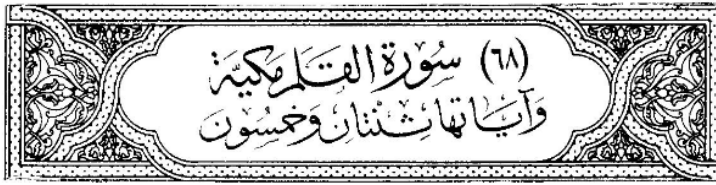 (٦٨) سُورَةُ القَلَمِ مَكِيَّة
وَآيَاتهَا ثِنْتَانِ وَخَمْسُون